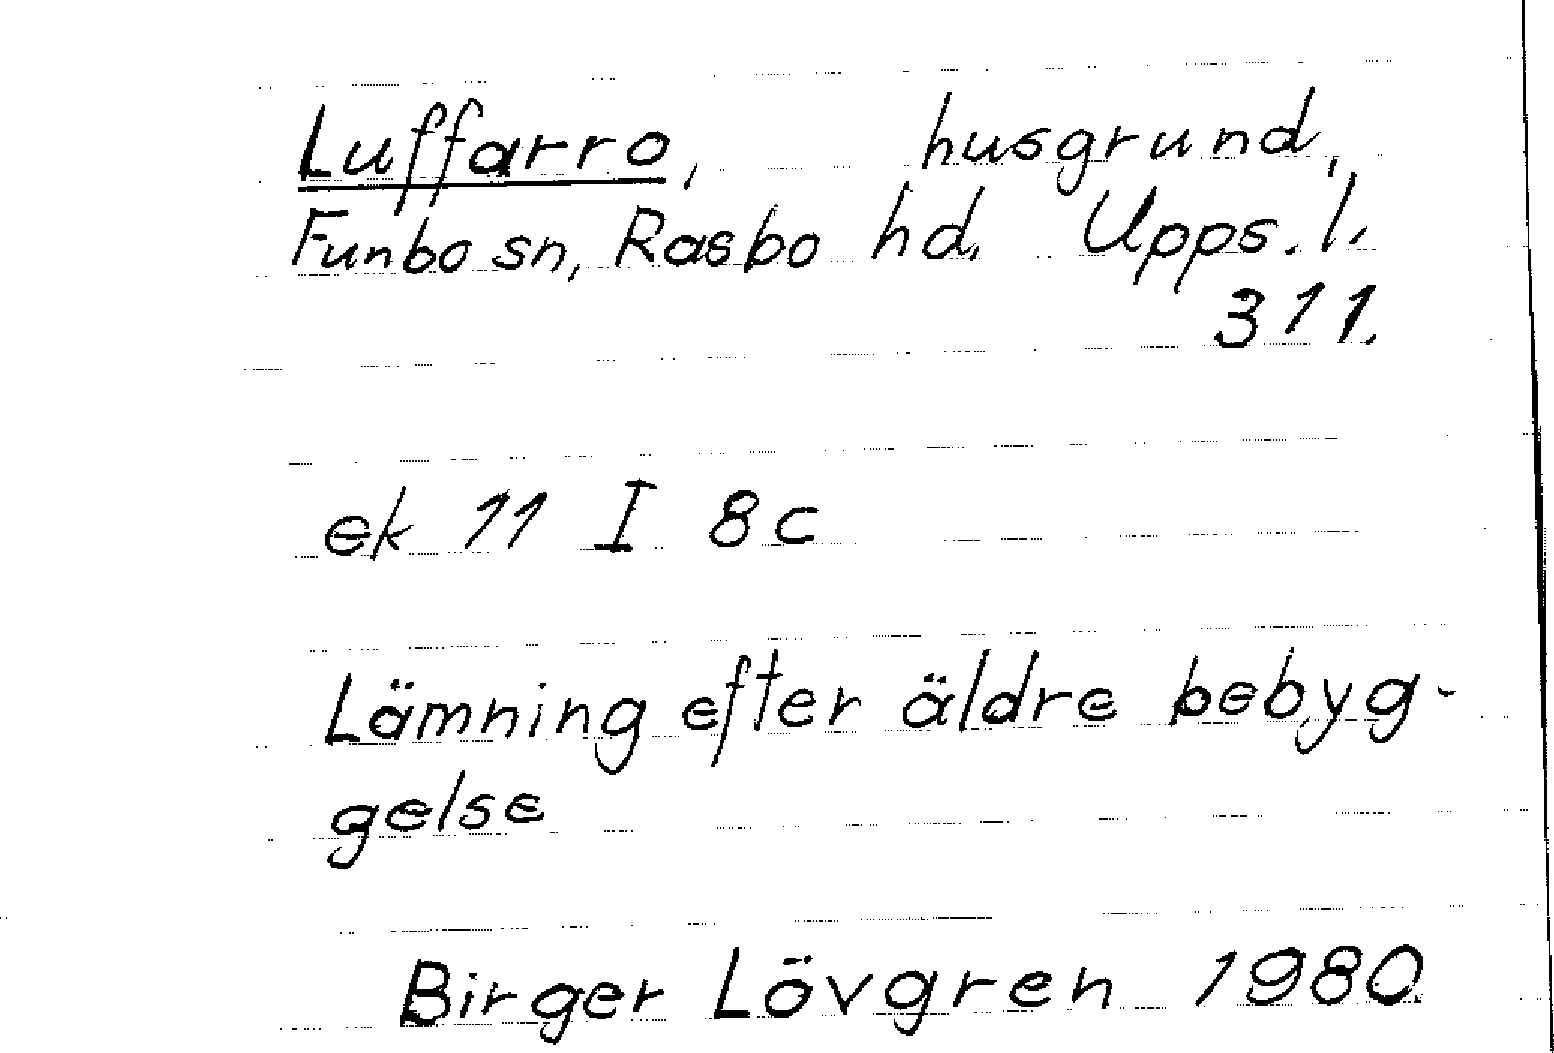 Luffarro, husgrund,
Funbo sn, Rasbo hd. Upps. l.
311.
ek 11 I 8c
Lämning efter äldre bebyg-
gelse
Birger Lövgren 1980